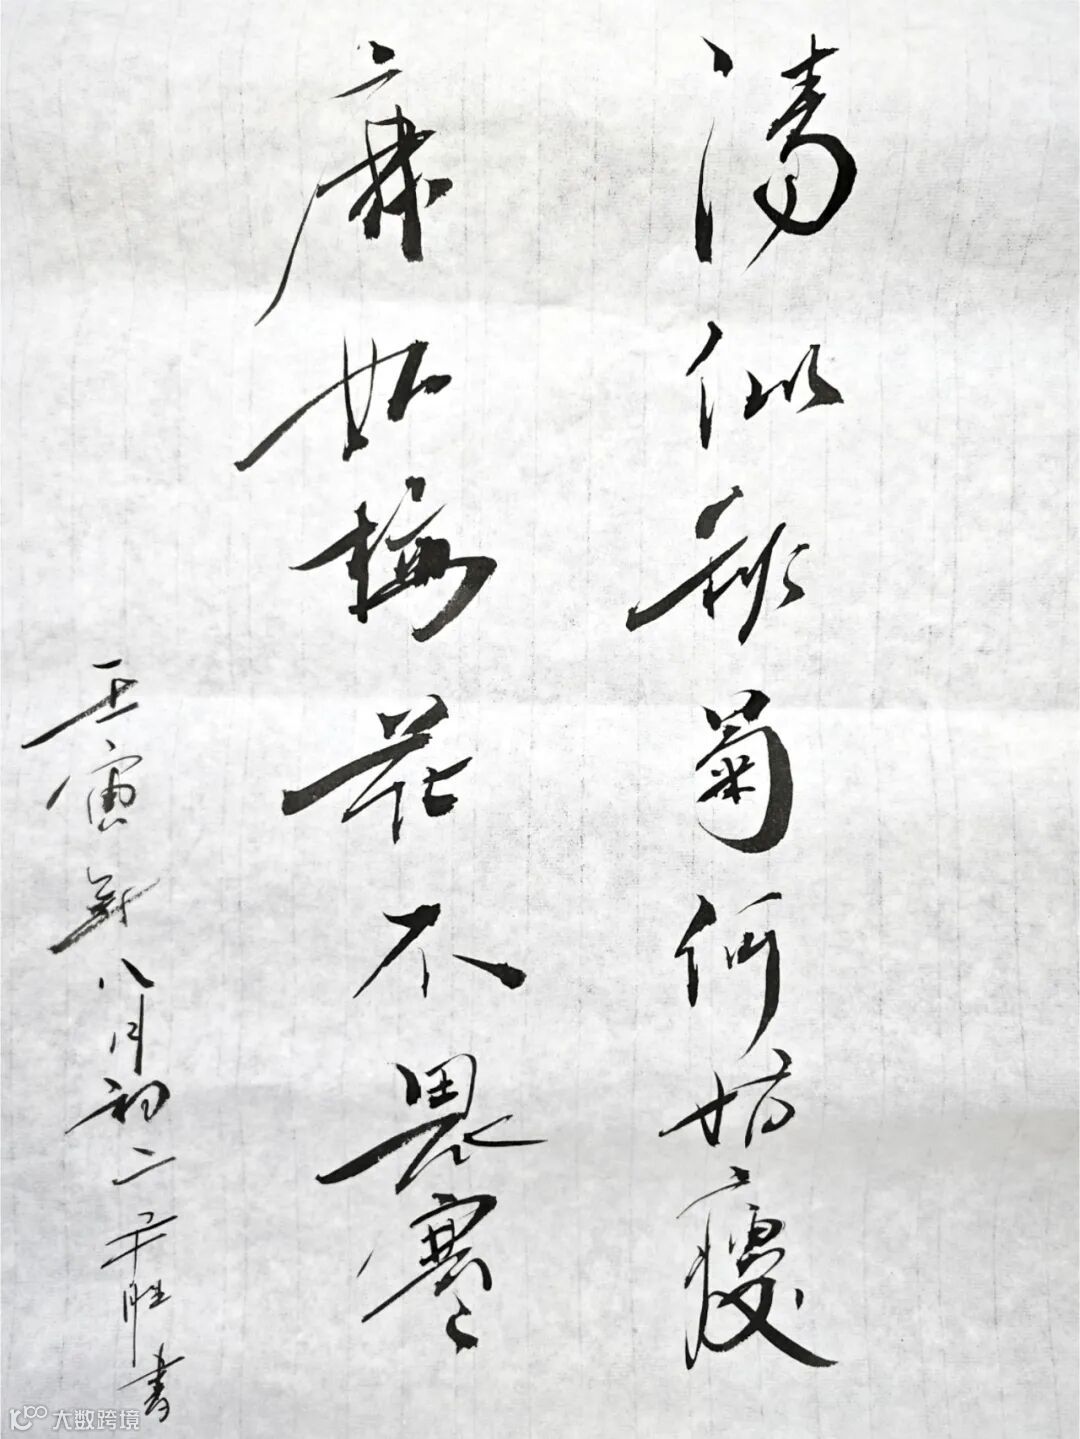 清似秋菊何妨瘦
廉如梅花不畏寒
壬寅年八月初二胜書
大数跨境